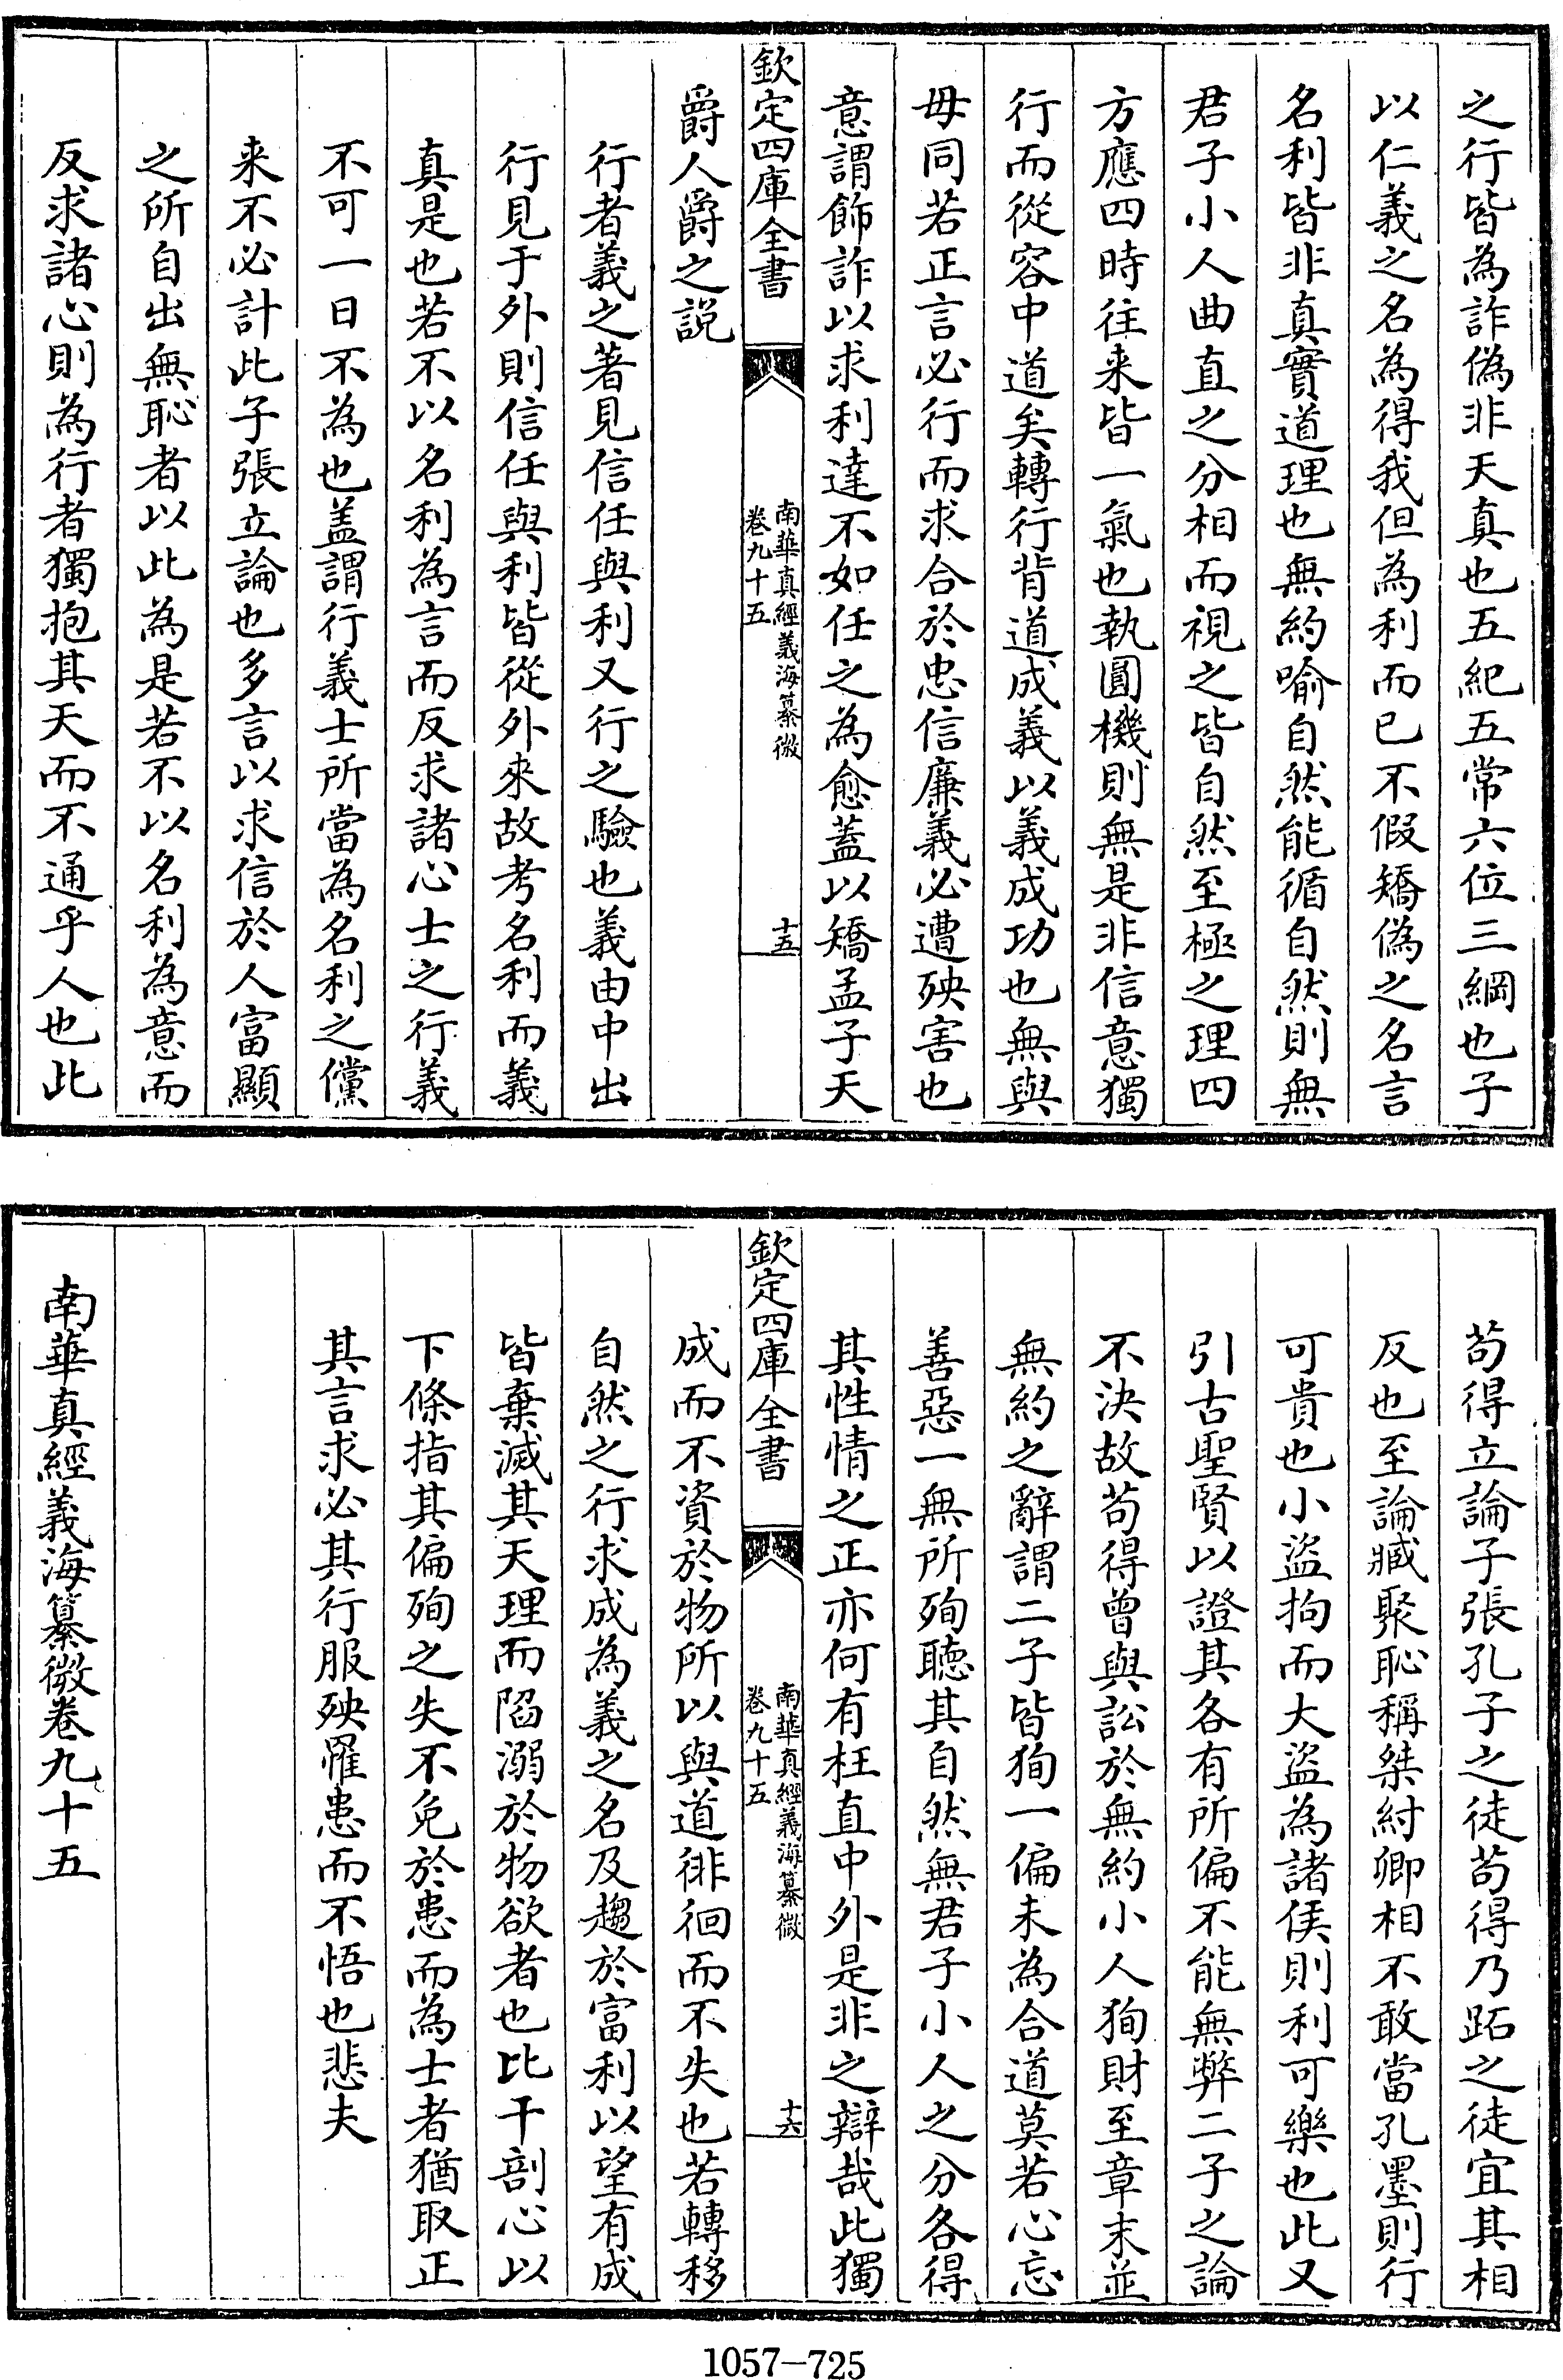 之行皆為詐偽非天真也五紀五常六位三綱也子
以仁義之名為得我但為利而已不假矯偽之名言
名利皆非真實道理也無約喻自然能循自然則無
君子小人曲直之分相而視之皆自然至極之理四
方應四時往来皆一氣也執圓機則無是非信意獨
行而從容中道矣轉行背道成義以義成功也無與
毋同若正言必行而求合於忠信廉義必遭殃害也
意謂飾詐以求利達不如任之為愈蓋以矯孟子天
欽定四庫全書
南華真經義海纂微
卷九十五
十五
爵人爵之説
行者義之著見信任與利又行之驗也義由中出
行見于外則信任與利皆從外來故考名利而義
真是也若不以名利為言而反求諸心士之行義
不可一日不為也盖謂行義士所當為名利之儻
来不必計此子張立論也多言以求信於人富顯
之所自出無恥者以此為是若不以名利為意而
反求諸心則為行者獨抱其天而不通乎人也此
苟得立論子張孔子之徒苟得乃跖之徒宜其相
反也至論臧聚恥稱桀紂卿相不敢當孔墨則行
可貴也小盜拘而大盜為諸侯則利可樂也此又
引古聖賢以證其各有所偏不能無弊二子之論
不決故苟得曾與訟於無約小人狥財至章末並
無約之辭謂二子皆狥一偏未為合道莫若心忘
善惡一無所殉聽其自然無君子小人之分各得
其性情之正亦何有枉直中外是非之辯哉此獨
欽定四庫全書
南華真經義海纂微
卷九十五
十六
成而不資於物所以與道徘徊而不失也若轉移
自然之行求成為義之名及趨於富利以望有成
皆棄滅其天理而陷溺於物欲者也比干剖心以
下條指其偏殉之失不免於患而為士者猶取正
其言求必其行服殃罹患而不悟也悲夫
南華真經義海纂微卷九十五
1057–725